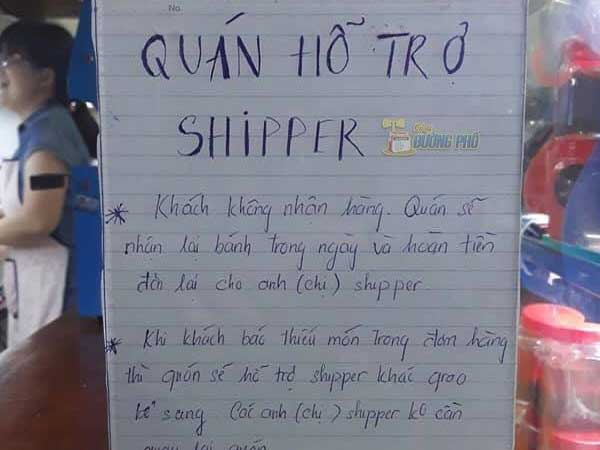 No.
QUÁN HỖ TRỢ
SHIPPER
Sức ĐƯỜNG PHỐ
* Khách không nhận hàng. Quán sẽ
nhận lại bánh trong ngày và hoàn tiền
đơn lại cho anh (chị) shipper.
* Khi khách báo thiếu món trong đơn hàng
thì quán sẽ hỗ trợ shipper khác giao
kế sang. Các anh (chị) shipper ko cần
quay lại quán